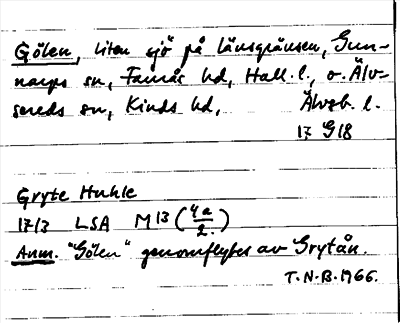 Gölen, liten sjö på länsgränsen, Gun-
narps sn, Faurås hd, Hall. l., o. Älv-
sereds sn, Kinds hd, Älvsb. l.
17 G18
Gryte Huhle
1713 LSA M13 (4a/2.)
Anm. "Gölen" genomflytes av Grytån.
T.N.B. 1966.